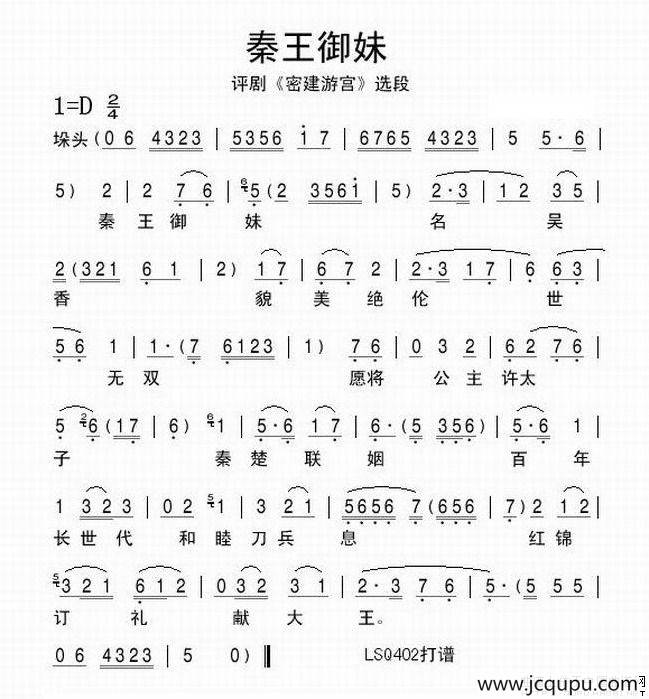 秦王御妹
评剧《密建游宫》选段
1=D 2/4
垛头(0 6 4323 | 5356 1 7 | 6765 4323 | 5 5· 6 |
5) 2 | 2 7 6 | 6 5(2 3561 | 5) 2·3 | 1 2 3 5 |
秦 王 御 妹 名 吴
2(321 6 1 | 2) 1 7 | 5 6 2 | 2·3 1 7 | 6 6 3 |
香 貌 美 绝 伦 世
5 6 1 | 1·(7 6123 | 1) 7 6 | 0 3 2 | 6 2 7 6 |
无 双 愿将 公 主 许太
5 2 6(17 | 6) 6 1 | 5·6 1 7 | 6·(5 356) | 5·6 1 |
子 秦 楚 联 姻 百 年
1 323 | 0 2 5 1 | 3 21 | 5656 7(656 | 7)2 12 |
长 世 代 和 睦 刀 兵 息 红 锦
5 3 2 1 | 6 1 2 | 0 3 2 3 1 | 2· 3 7 6 | 5·(5 |
订 礼 献 大 王。
0 6 4323 | 5 0) ‖
LSQ402打谱
www.jcqupu.com